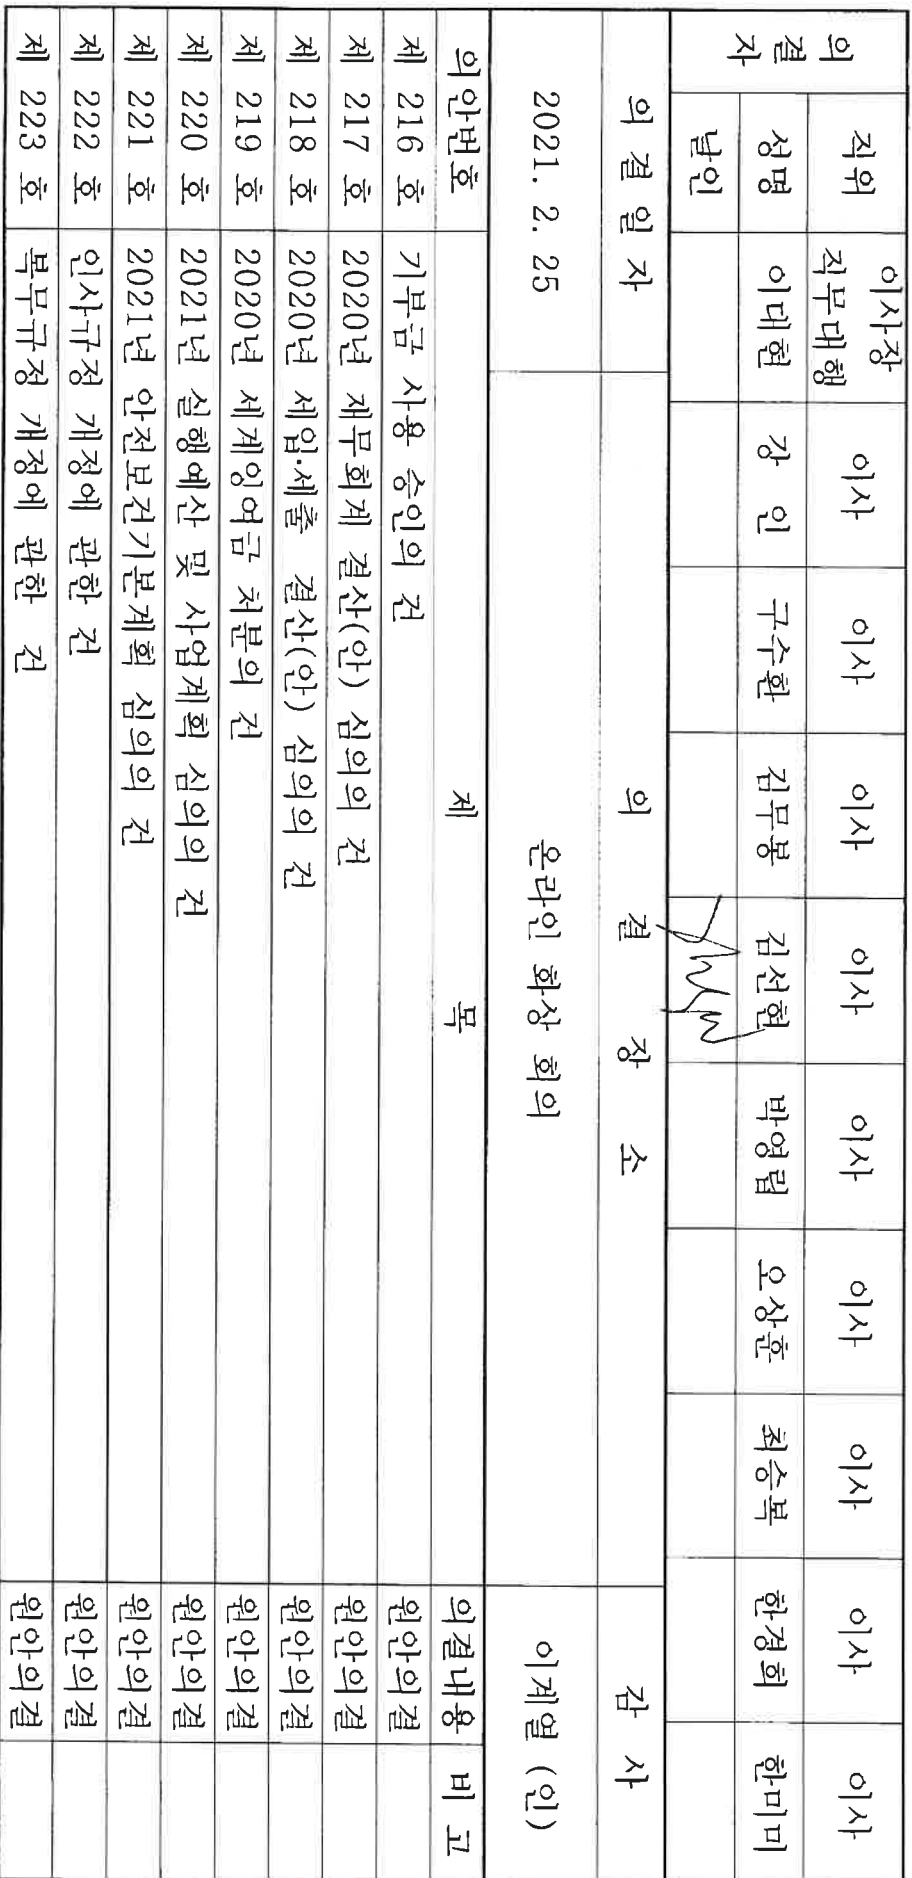 의결자 직위 이사장 직무대행 이사 이사 이사 이사 이사 이사 이사 이사 이사
성명 이대현 강 인 구수환 김무봉 김선현 박영림 오상훈 최승복 한경희 한미미
날인
의 결 일 자 의 결 장 소 감 사
2021. 2. 25 온라인 화상 회의 이계열 (인)
의안번호 제 목 의결내용 비 고
제 216 호 기부금 사용 승인의 건 원안의결
제 217 호 2020년 재무회계 결산(안) 심의의 건 원안의결
제 218 호 2020년 세입·세출 결산(안) 심의의 건 원안의결
제 219 호 2020년 세계잉여금 처분의 건 원안의결
제 220 호 2021년 실행예산 및 사업계획 심의의 건 원안의결
제 221 호 2021년 안전보건기본계획 심의의 건 원안의결
제 222 호 인사규정 개정에 관한 건 원안의결
제 223 호 복무규정 개정에 관한 건 원안의결